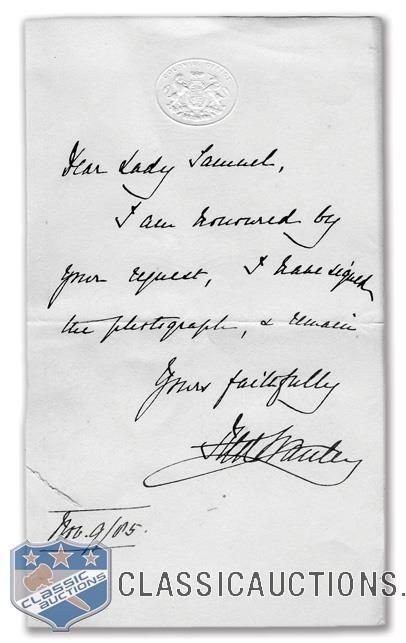 COLONIAL OFFICE
Dear Lady Samuel,
I am honoured by
your request, I have signed
the photograph, & remain
Yours faithfully
Nov. 9/85.
CLASSIC
AUCTIONS
CLASSICAUCTIONS.